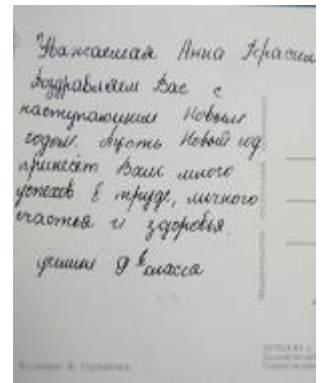 Уважаемая Анна Гераси
Поздравляем Вас с
наступающим Новым
годом. Пусть Новый год
принесёт Вам много
успехов в труде, личного
счастья и здоровья.
ученики 9 в класса